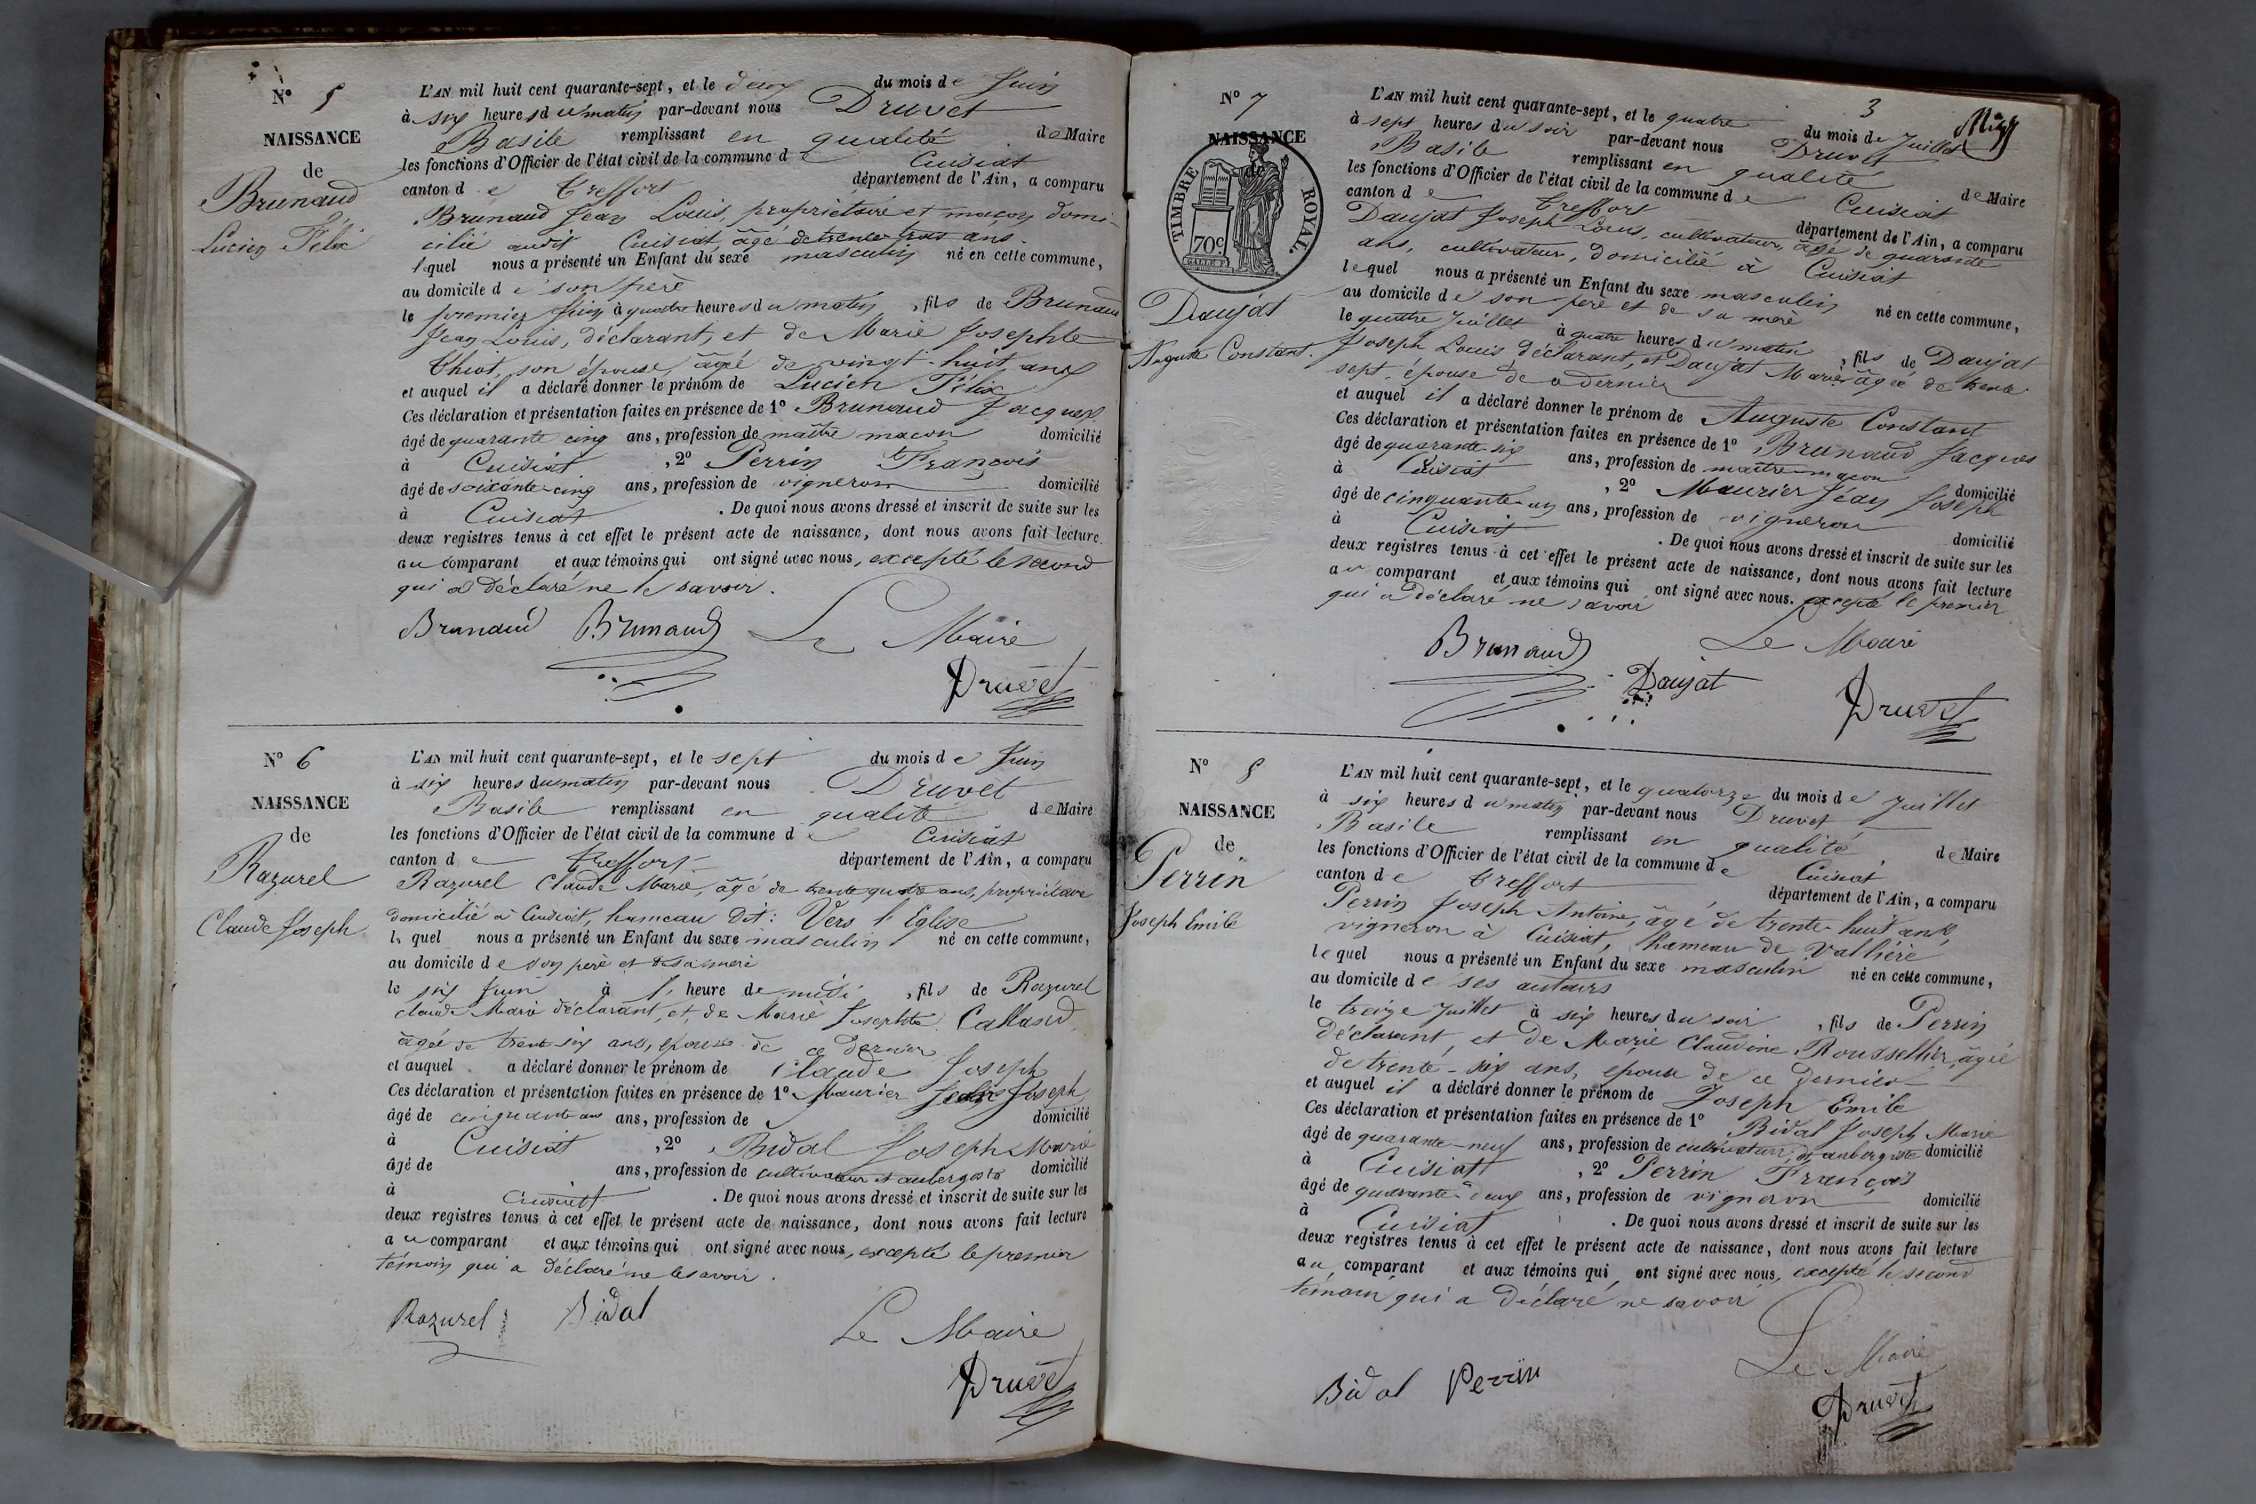 N° 5
NAISSANCE
de
Brunaud
Lucien Félix
L'AN mil huit cent quarante-sept, et le deux du mois de Juin
à six heures du matin par-devant nous Druvet
Basile remplissant en qualité de Maire
les fonctions d'Officier de l'état civil de la commune de Cuisiat
canton de Treffort département de l'Ain, a comparu
Brunaud Jean Louis, propriétaire et maçon domi-
cilié audit Cuisiat, âgé de trente trois ans.
lequel nous a présenté un Enfant du sexe masculin né en cette commune,
au domicile de son père
le premier Juin à quatre heures du matin, fils de Brunaud
Jean Louis, déclarant, et de Marie Josephte
Chiot, son épouse, âgé de vingt-huit ans
et auquel il a déclaré donner le prénom de Lucien Félix
Ces déclaration et présentation faites en présence de 1° Brunaud Jacques
âgé de quarante cinq ans, profession de maître maçon domicilié
à Cuisiat, 2° Perrin François
âgé de soixante-cinq ans, profession de vigneron domicilié
à Cuisiat. De quoi nous avons dressé et inscrit de suite sur les
deux registres tenus à cet effet le présent acte de naissance, dont nous avons fait lecture
au comparant et aux témoins qui ont signé avec nous, excepté le second
qui a déclaré ne le savoir.
Brunaud Brunaud Le Maire
Druvet
N° 6
NAISSANCE
de
Razurel
Claude Joseph
L'AN mil huit cent quarante-sept, et le sept du mois de Juin
à six heures du matin par-devant nous Druvet
Basile remplissant en qualité de Maire
les fonctions d'Officier de l'état civil de la commune de Cuisiat
canton de Treffort département de l'Ain, a comparu
Razurel Claude Marie, âgé de trente quatre ans, propriétaire
domicilié à Cuisiat, hameau dit: Vers l'Eglise
lequel nous a présenté un Enfant du sexe masculin né en cette commune,
au domicile de son père et de sa mère
le six Juin à l' heure de midi, fils de Razurel
Claude Marie déclarant, et de Marie Josephte Calland,
âgée de trente six ans, épouse de ce dernier
et auquel a déclaré donner le prénom de Claude Joseph
Ces déclaration et présentation faites en présence de 1° Maurier Jean Joseph
âgé de cinquante ans ans, profession de domicilié
à Cuisiat, 2° Bidal Joseph Marie
âgé de ans, profession de cultivateur et aubergiste domicilié
à Cuisiat. De quoi nous avons dressé et inscrit de suite sur les
deux registres tenus à cet effet le présent acte de naissance, dont nous avons fait lecture
au comparant et aux témoins qui ont signé avec nous, excepté le premier
témoin qui a déclaré ne le savoir.
Razurel Bidal Le Maire
Druvet
3
N° 7
NAISSANCE
de
TIMBRE ROYAL.
70c
Daujat
Auguste Constant.
L'AN mil huit cent quarante-sept, et le quatre du mois de Juillet
à sept heures du soir par-devant nous Druvet
Basile remplissant en qualité de Maire
les fonctions d'Officier de l'état civil de la commune de Cuisiat
canton de Treffort département de l'Ain, a comparu
Daujat Joseph Louis, cultivateur, âgé de quarante
ans, cultivateur, domicilié à Cuisiat
lequel nous a présenté un Enfant du sexe masculin né en cette commune,
au domicile de son père et de sa mère
le quatre Juillet à quatre heures du matin, fils de Daujat
Joseph Louis, déclarant, et Daujat Marie âgée de trente
sept, épouse de ce dernier
et auquel il a déclaré donner le prénom de Auguste Constant
Ces déclaration et présentation faites en présence de 1° Brunaud Jacques
âgé de quarante-six ans, profession de maître-maçon domicilié
à Cuisiat, 2° Maurier Jean Joseph
âgé de cinquante-un ans, profession de vigneron domicilié
à Cuisiat. De quoi nous avons dressé et inscrit de suite sur les
deux registres tenus à cet effet le présent acte de naissance, dont nous avons fait lecture
au comparant et aux témoins qui ont signé avec nous. excepté le premier
qui a déclaré ne savoir
Brunaud Le Maire
Daujat Druvet
N° 8
NAISSANCE
de
Perrin
Joseph Emile
L'AN mil huit cent quarante-sept, et le quatorze du mois de Juillet
à six heures du matin par-devant nous Druvet
Basile remplissant en qualité de Maire
les fonctions d'Officier de l'état civil de la commune de Cuisiat
canton de Treffort département de l'Ain, a comparu
Perrin Joseph Antoine, âgé de trente-huit ans,
vigneron à Cuisiat, hameau de Vallière
lequel nous a présenté un Enfant du sexe masculin né en cette commune,
au domicile de ses auteurs
le treize Juillet à six heures du soir, fils de Perrin
déclarant, et de Marie Claudine Rousselliér, âgée
de trente-six ans, épouse de ce dernier
et auquel il a déclaré donner le prénom de Joseph Emile
Ces déclaration et présentation faites en présence de 1° Bidal Joseph Marie
âgé de quarante-neuf ans, profession de cultivateur et aubergiste domicilié
à Cuisiat, 2° Perrin François
âgé de quarante-deux ans, profession de vigneron domicilié
à Cuisiat. De quoi nous avons dressé et inscrit de suite sur les
deux registres tenus à cet effet le présent acte de naissance, dont nous avons fait lecture
au comparant et aux témoins qui ont signé avec nous, excepté le second
témoin qui a déclaré ne savoir
Bidal Perrin Le Maire
Druvet